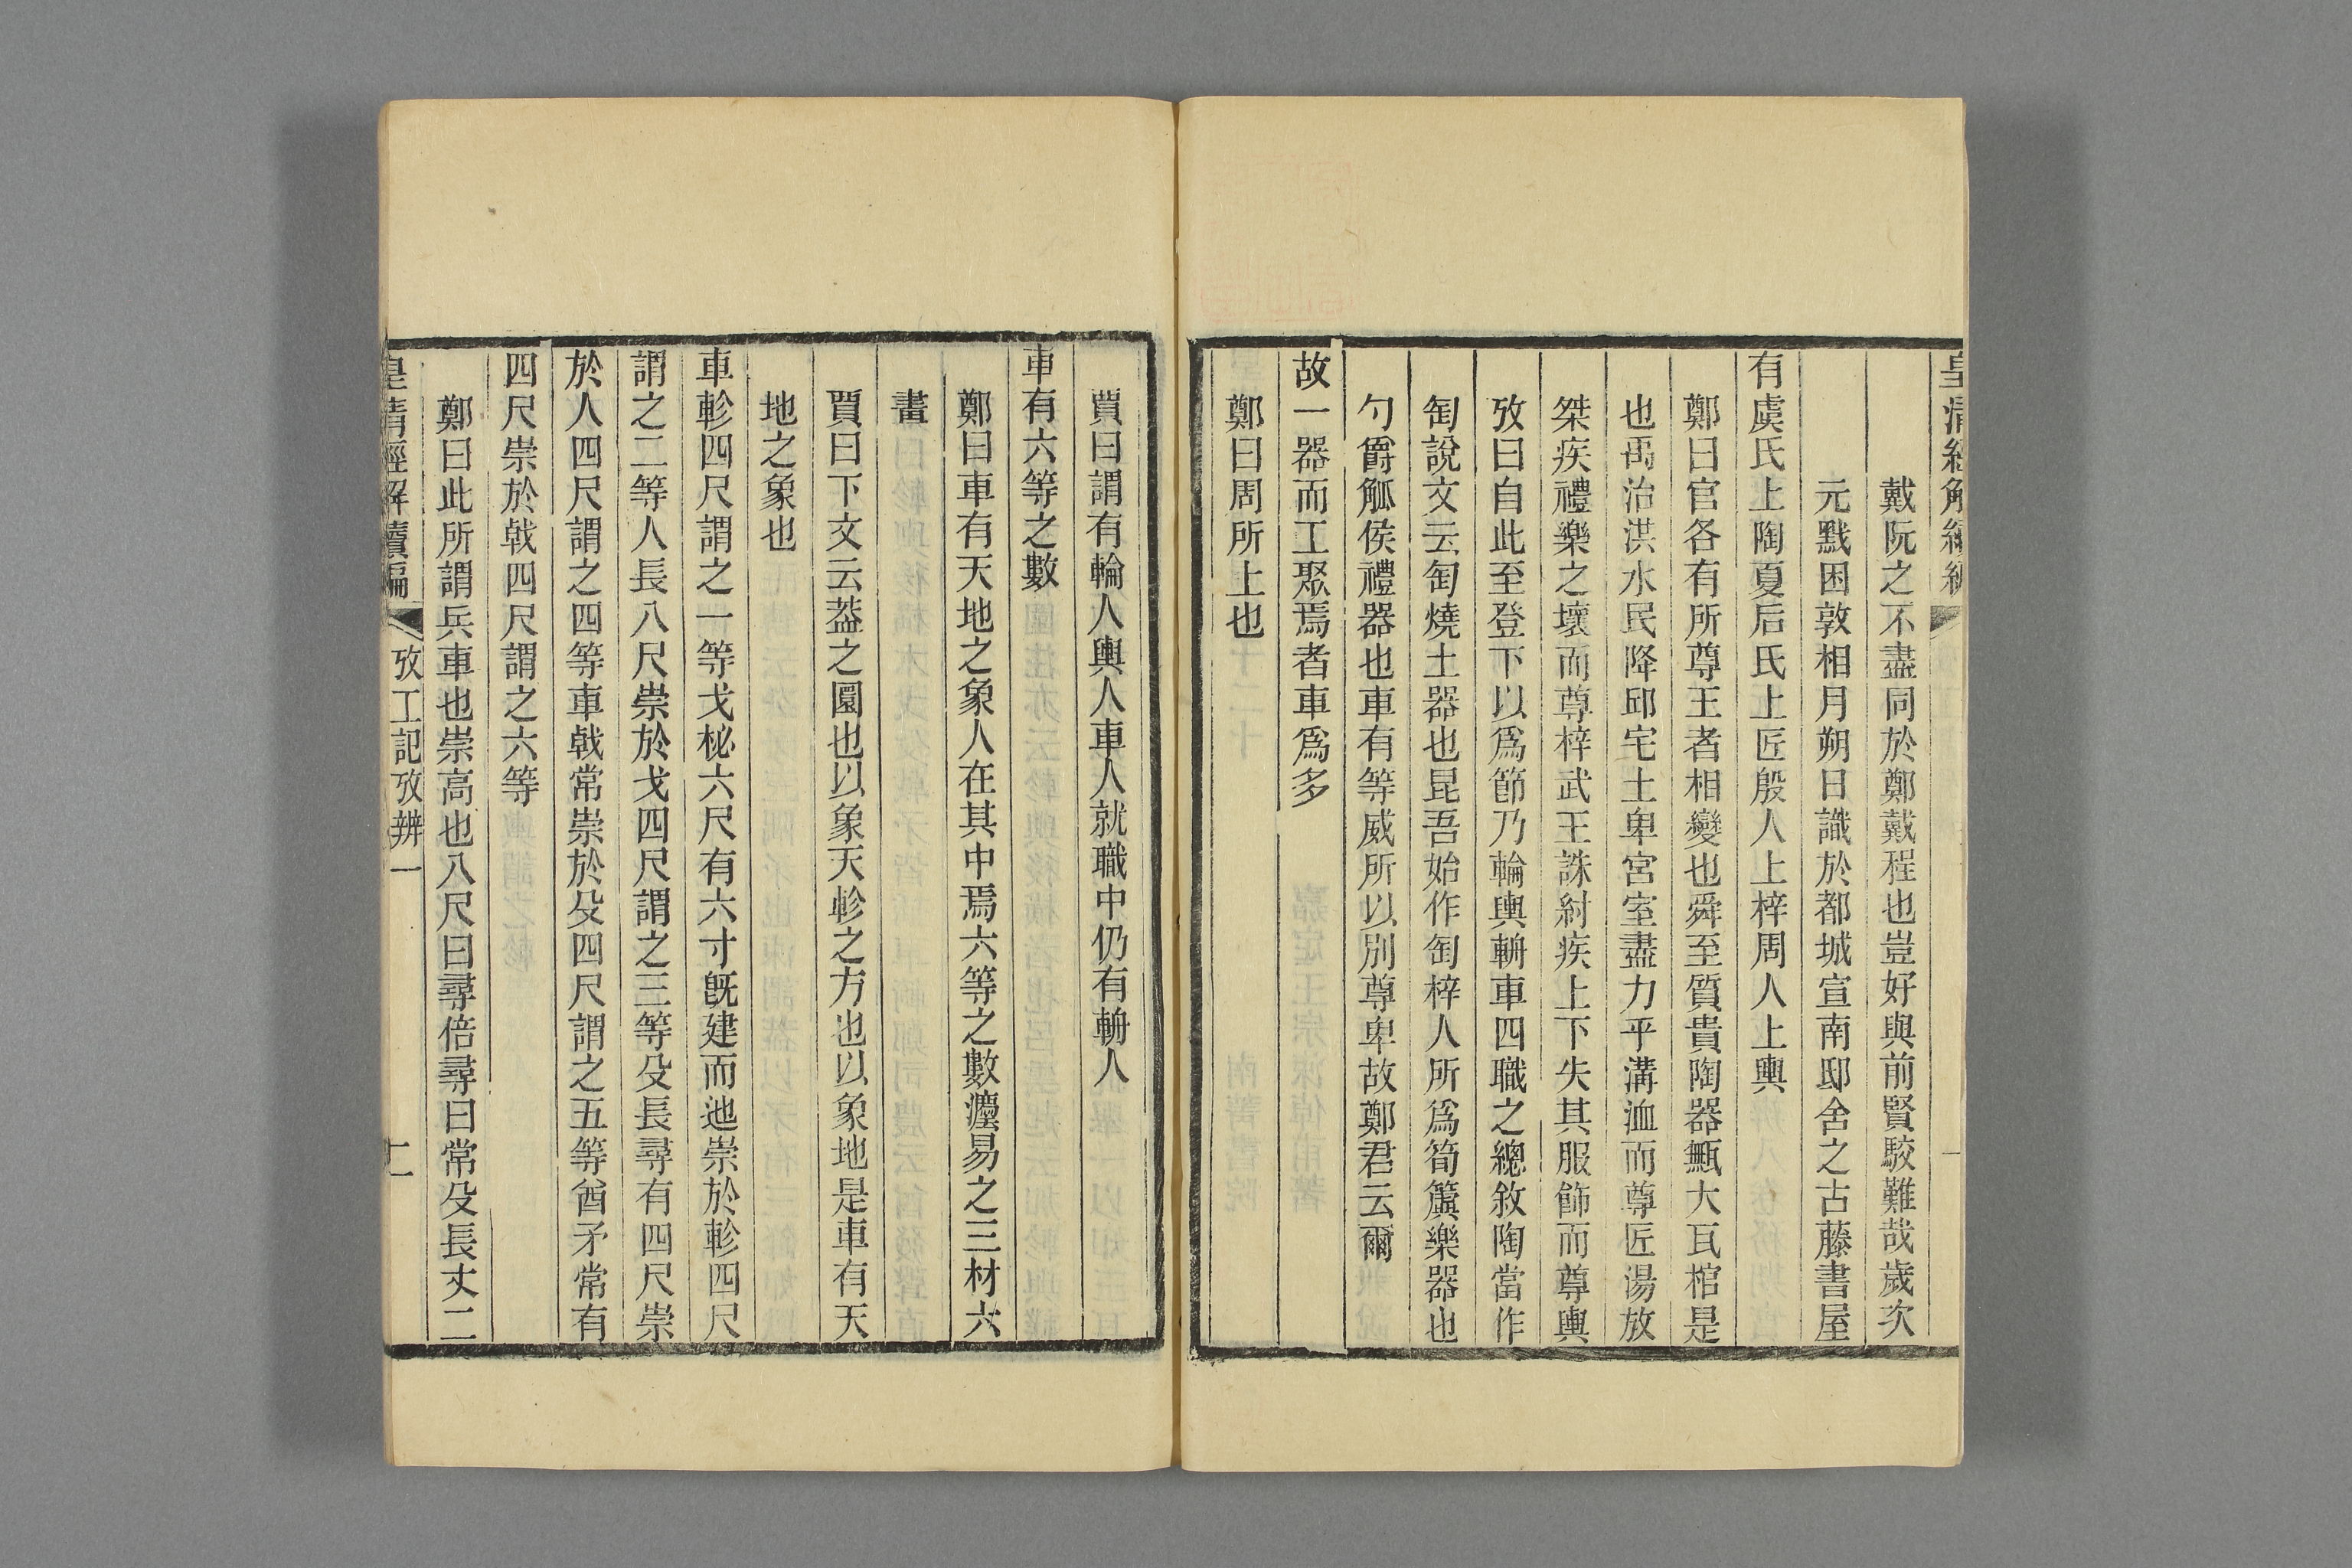 皇清經解續編
戴阮之不盡同於鄭戴程也豈好與前賢駮難哉歲次
元黓困敦相月朔日識於都城宣南邸舍之古藤書屋
有虞氏上陶夏后氏上匠殷人上梓周人上輿
鄭曰官各有所尊王者相變也舜至質貴陶器甒大瓦棺是
也禹治洪水民降邱宅土卑宮室盡力乎溝洫而尊匠湯放
桀疾禮樂之壞而尊梓武王誅紂疾上下失其服飾而尊輿
攷曰自此至登下以爲節乃輪輿輈車四職之總敘陶當作
匋說文云匋燒土器也昆吾始作匋梓人所爲筍簴樂器也
勺爵觚侯禮器也車有等威所以別尊卑故鄭君云爾
故一器而工聚焉者車爲多
鄭曰周所上也
賈曰謂有輪人輿人車人就職中仍有輈人
車有六等之數
鄭曰車有天地之象人在其中焉六等之數灋易之三材六
畫
賈曰下文云葢之圜也以象天軫之方也以象地是車有天
地之象也
車軫四尺謂之一等戈柲六尺有六寸旣建而迆崇於軫四尺
謂之二等人長八尺崇於戈四尺謂之三等殳長尋有四尺崇
於人四尺謂之四等車戟常崇於殳四尺謂之五等酋矛常有
四尺崇於戟四尺謂之六等
鄭曰此所謂兵車也崇高也八尺曰尋倍尋曰常殳長丈二
皇清經解續編 攷工記攷辨一 二